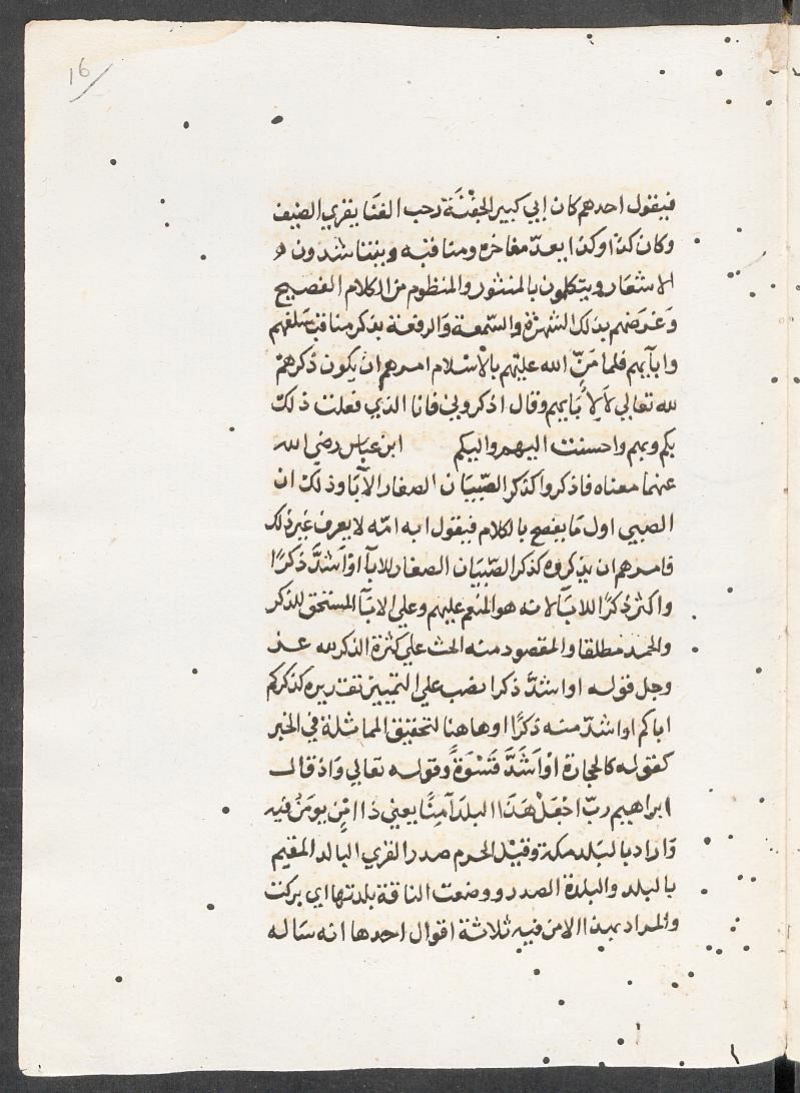 16
فيقول احدهم كان ابي كبير الجَفْنَة رحب الفنا يقري الضيف
وكان كذا وكذا يعدّ مفاخره ومناقبه ويتناشدون ه
الاشعار ويتكلمون بالمنثور والمنظوم من الكلام الفصيح
وَغَرضهم بذلك الشهرة والسّمعة وَالرفعة بذكر مناقب سَلفهم
وابآيهم فلما مَنّ الله عليهم بالْاسْلام امرهم ان يكون ذكرهمْ
لله تعالي لَا لِأبَايهم وقال اذكروني فانا الذي فعلت ذلك
بكم وبهم واحسنت اليهم واليكم ابن عباس رضي الله
عنهما معناه فاذكروا كذكر الصّبيَان الصغار الآبَا وذلك ان
الصبي اول مَا يفصح بالكلام فيقول ابه امّه لا يعرف غير ذلك
فامرهم ان يذكروه كذكر الصّبيَان الصغار للابآ اوْ اَشدَّ ذكرًا
واكثر ذكرًا للابَآ لانه هو المنعم عليهم وعلي الابَآ المستحق للذكر
والحمد مطلقا والمقصود منه الحث علي كثرة الذكر لله عز
وجل قوله او اشدَّ ذكرا نصب علي التمييز تقديره كذكركم
اباكم او اشدّ منه ذكرًا او هاهنا لتحقيق المماثلة في الخبر
كقوله كالحجارة اوْ اَشَدَّ قَسْوَةً وقوله تعالي وَاذ قال
ابراهيم ربّ اجْعَلْ هَذَا البلدَ آمِنًا يعني ذا امْنٍ يومَنُ فيه
وَاراد بالبَلد مكة وقيْل الحرم صدر القري البالد المقيم
بالبلد والبلدة الصدر ووضعت الناقة بلدتها اي بركت
والمراد بهذا الامن فيه ثلاثة اقوال احدها انه سَاله